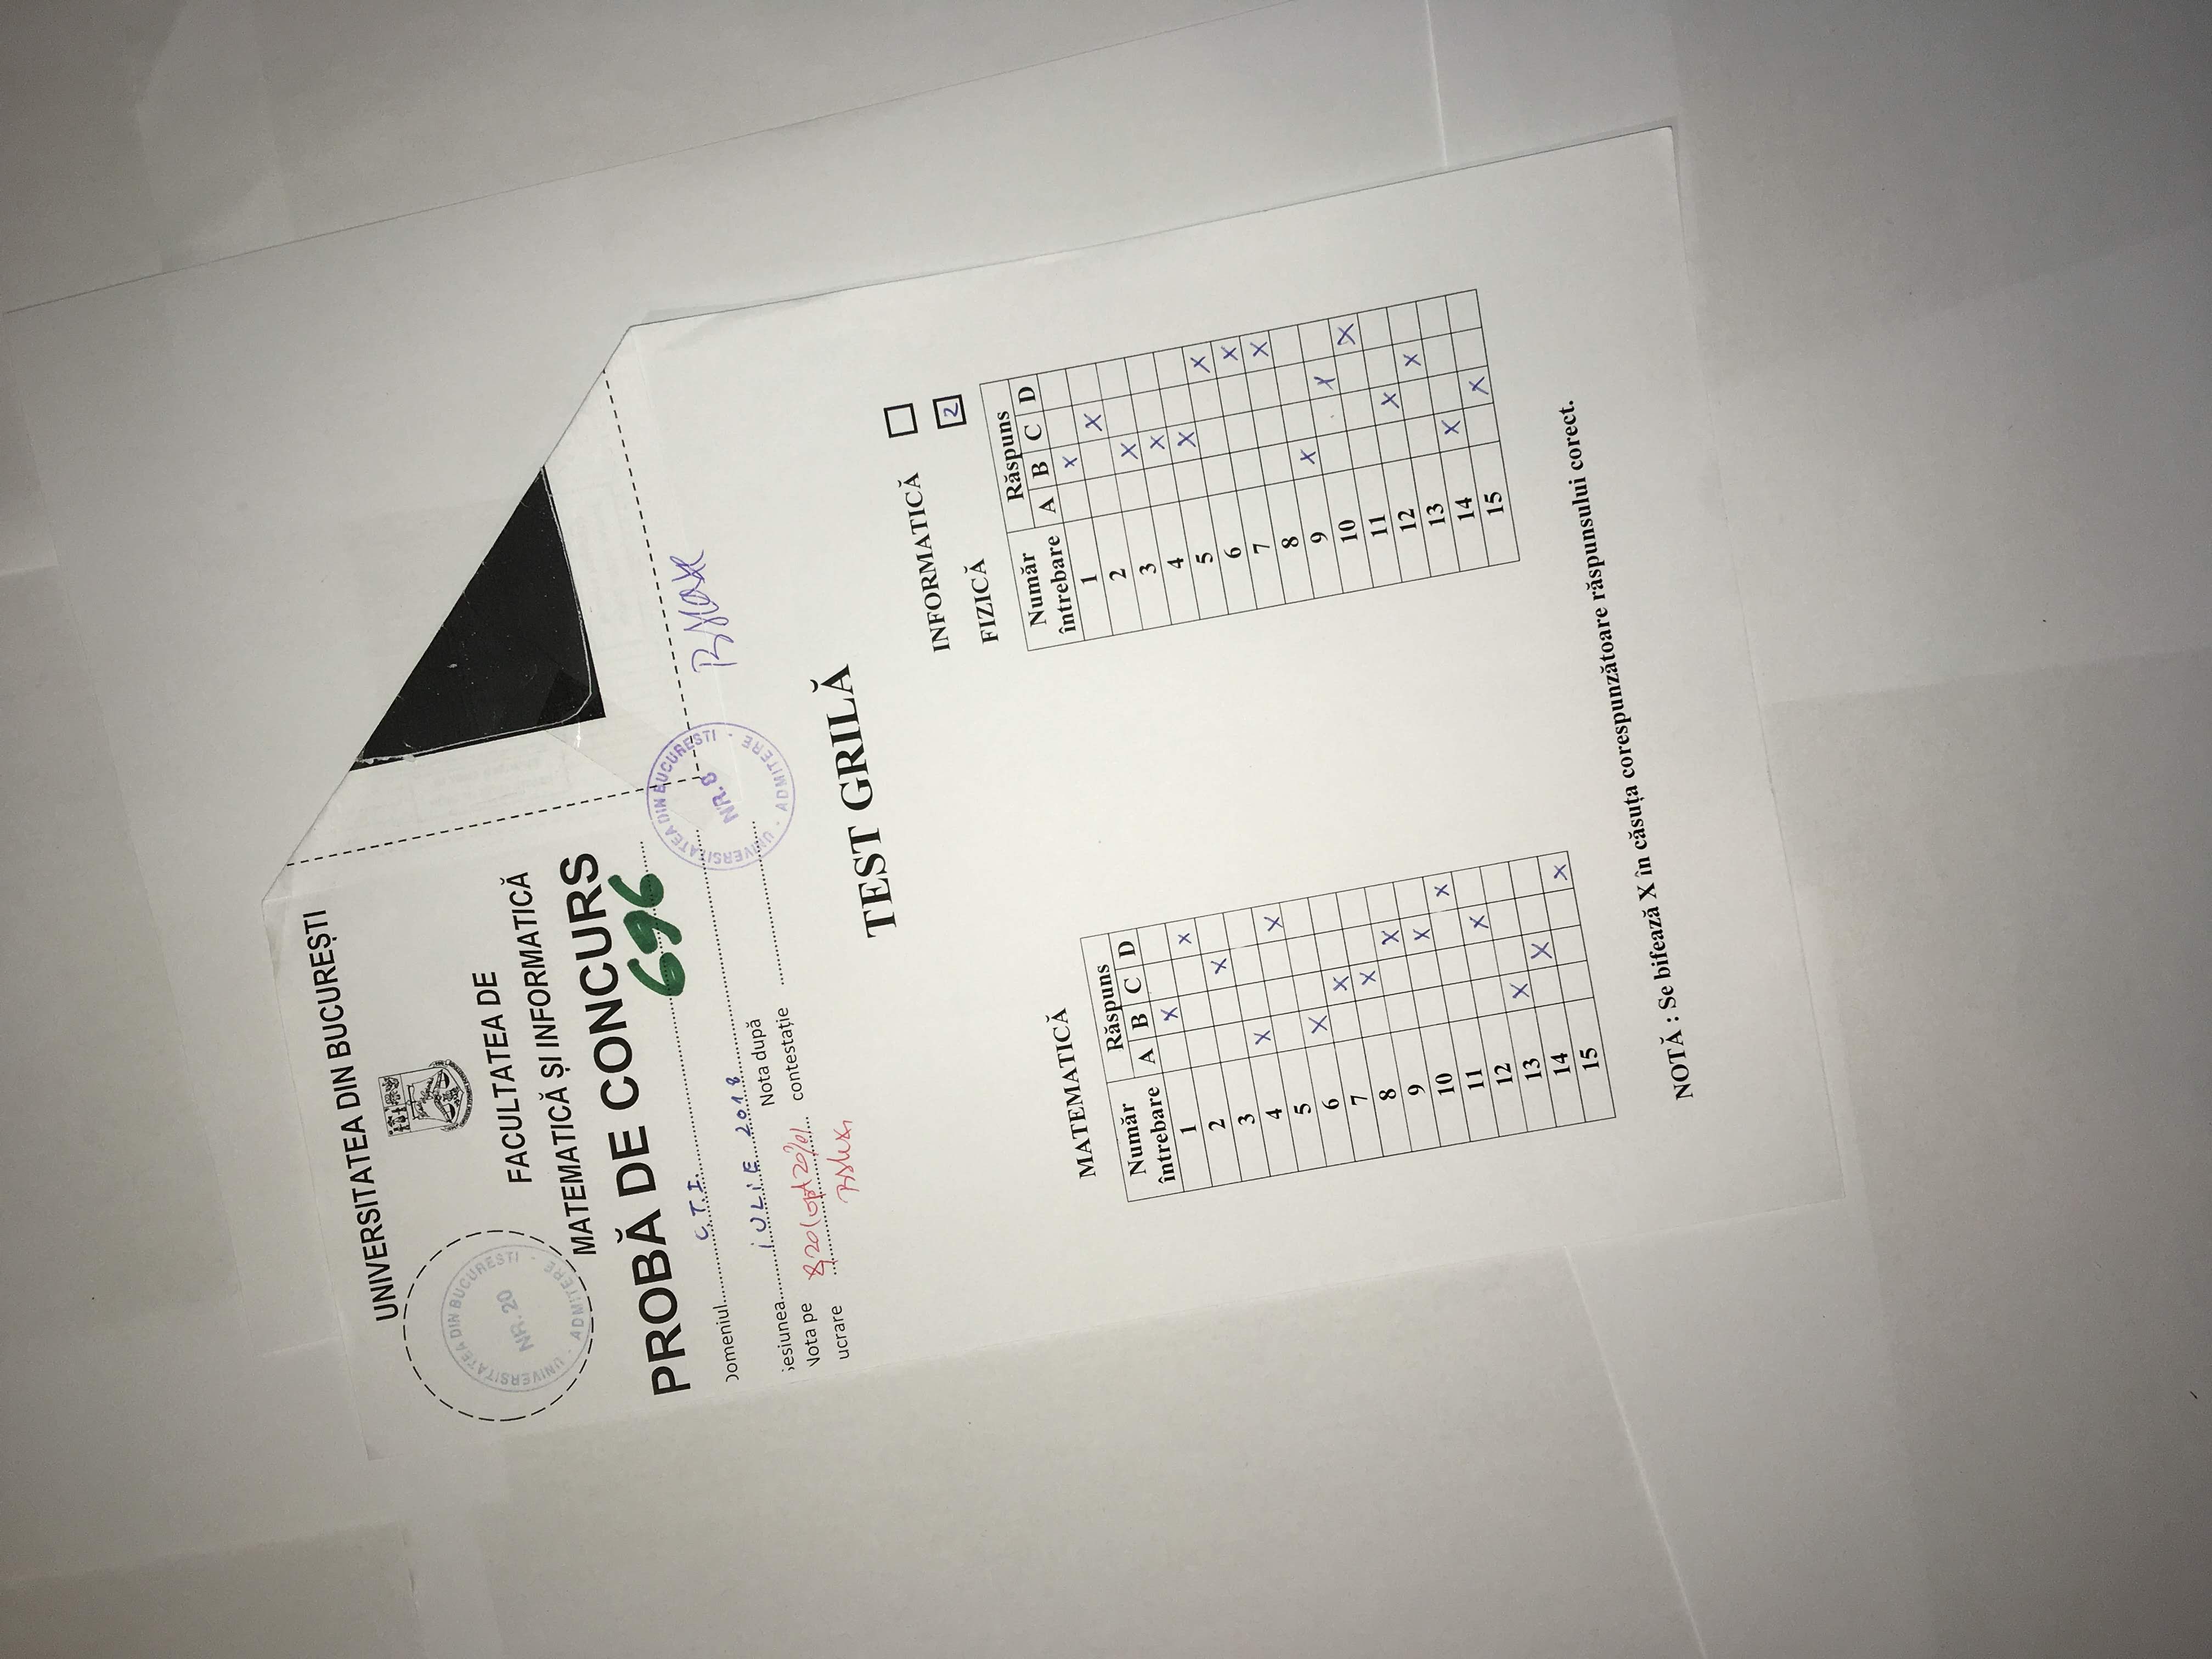 UNIVERSITATEA DIN BUCUREȘTI
UNIVERSITATEA DIN BUCURESTI
NR. 20
ADMITERE
FACULTATEA DE
MATEMATICĂ ȘI INFORMATICĂ
PROBĂ DE CONCURS
696
Domeniul C.T.I.
Sesiunea iULiE 2018
Nota pe
ucrare
8,20 (opt 20%)
Nota după
contestație
UNIVERSITATEA DIN BUCURESTI
NR. 8
ADMITERE
TEST GRILĂ
INFORMATICĂ
FIZICĂ 2
MATEMATICĂ
Număr întrebare Răspuns
A B C D
1 X
2 X
3 X
4 X
5 X
6 X
7 X
8 X
9 X
10 X
11 X
12 X
13 X
14 X
15 X
Număr întrebare Răspuns
A B C D
1 X
2 X
3 X
4 X
5 X
6 X
7 X
8 X
9 X
10 X
11 X
12 X
13 X
14 X
15 X
NOTĂ : Se bifează X în căsuța corespunzătoare răspunsului corect.